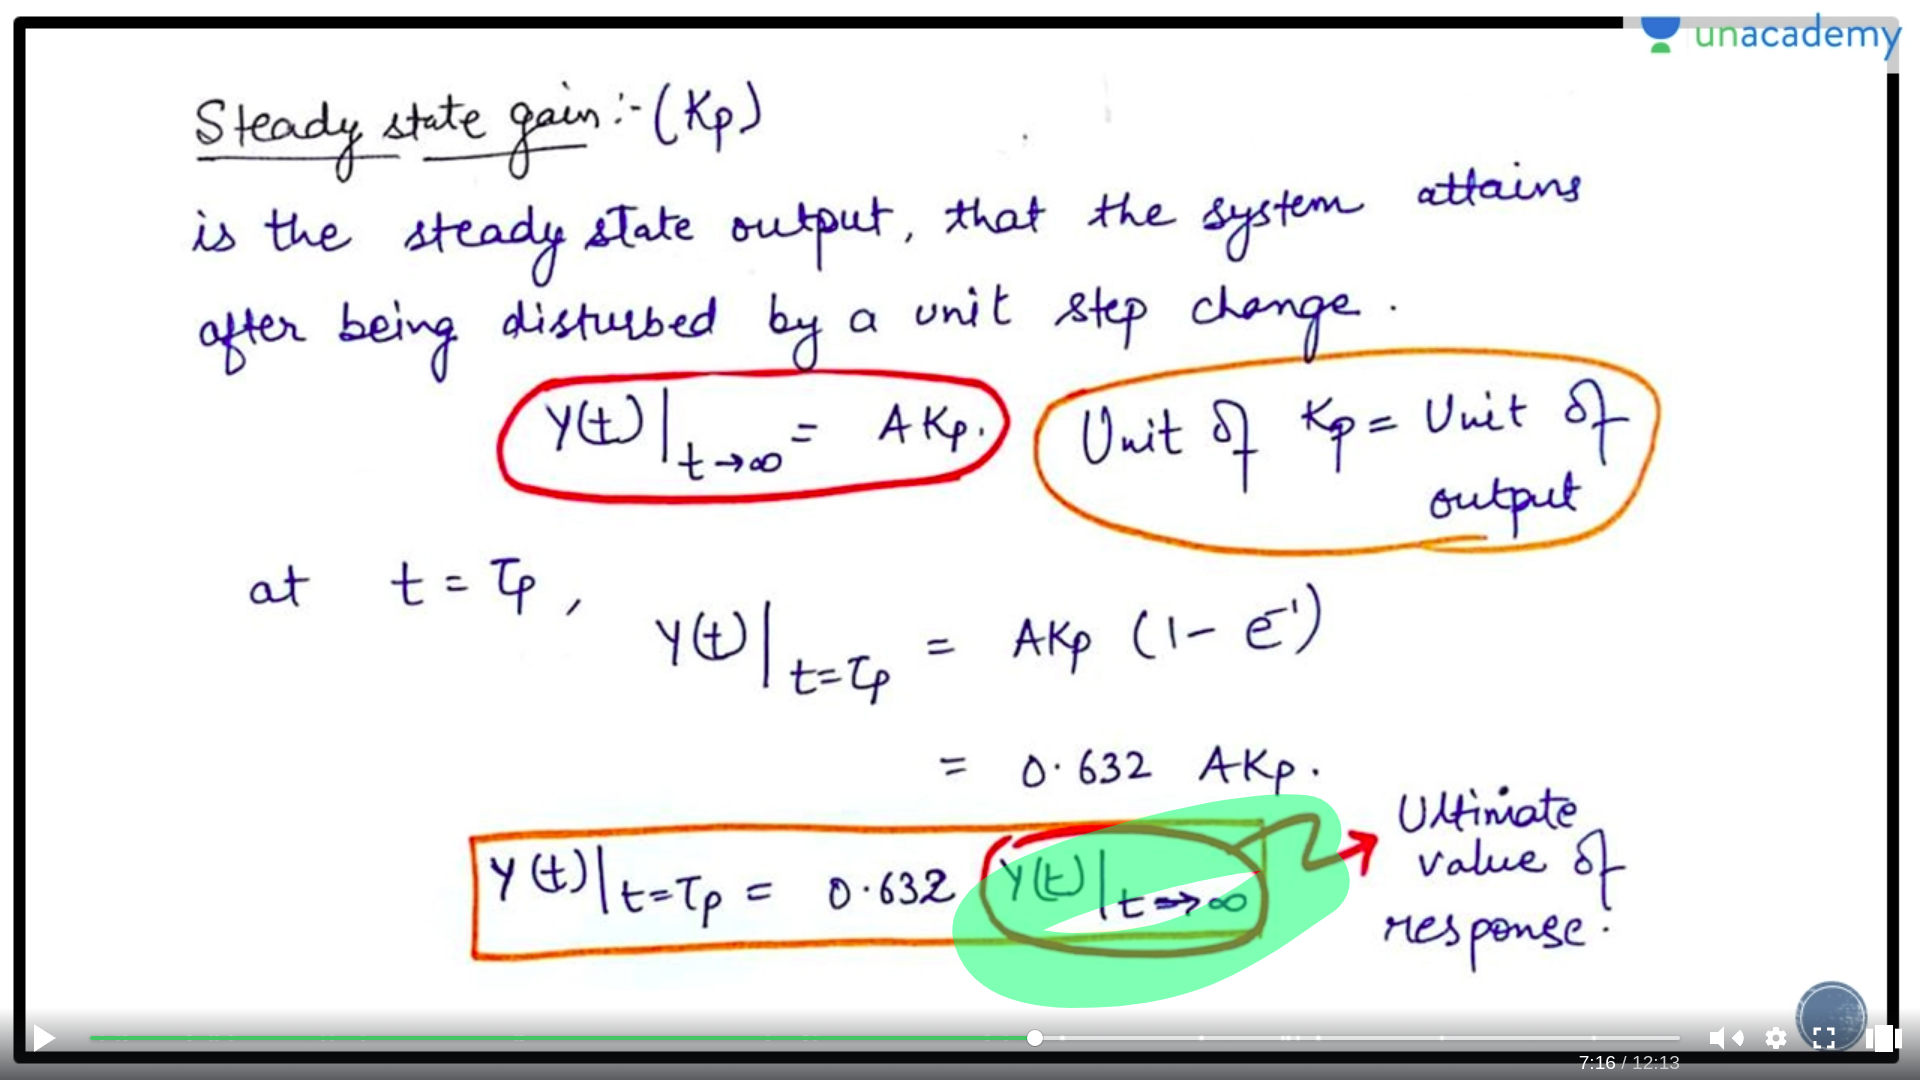 unacademy
Steady state gain :- (Kp)
is the steady state output, that the system attains
after being disturbed by a unit step change.
Y(t)|t→∞ = AKp.
Unit of Kp = Unit of
output
at t = τp,
Y(t)|t=τp = AKp (1 - e⁻¹)
= 0.632 AKp.
Y(t)|t=τp = 0.632 Y(t)|t→∞
Ultimate
value of
response.
7:16 / 12:13